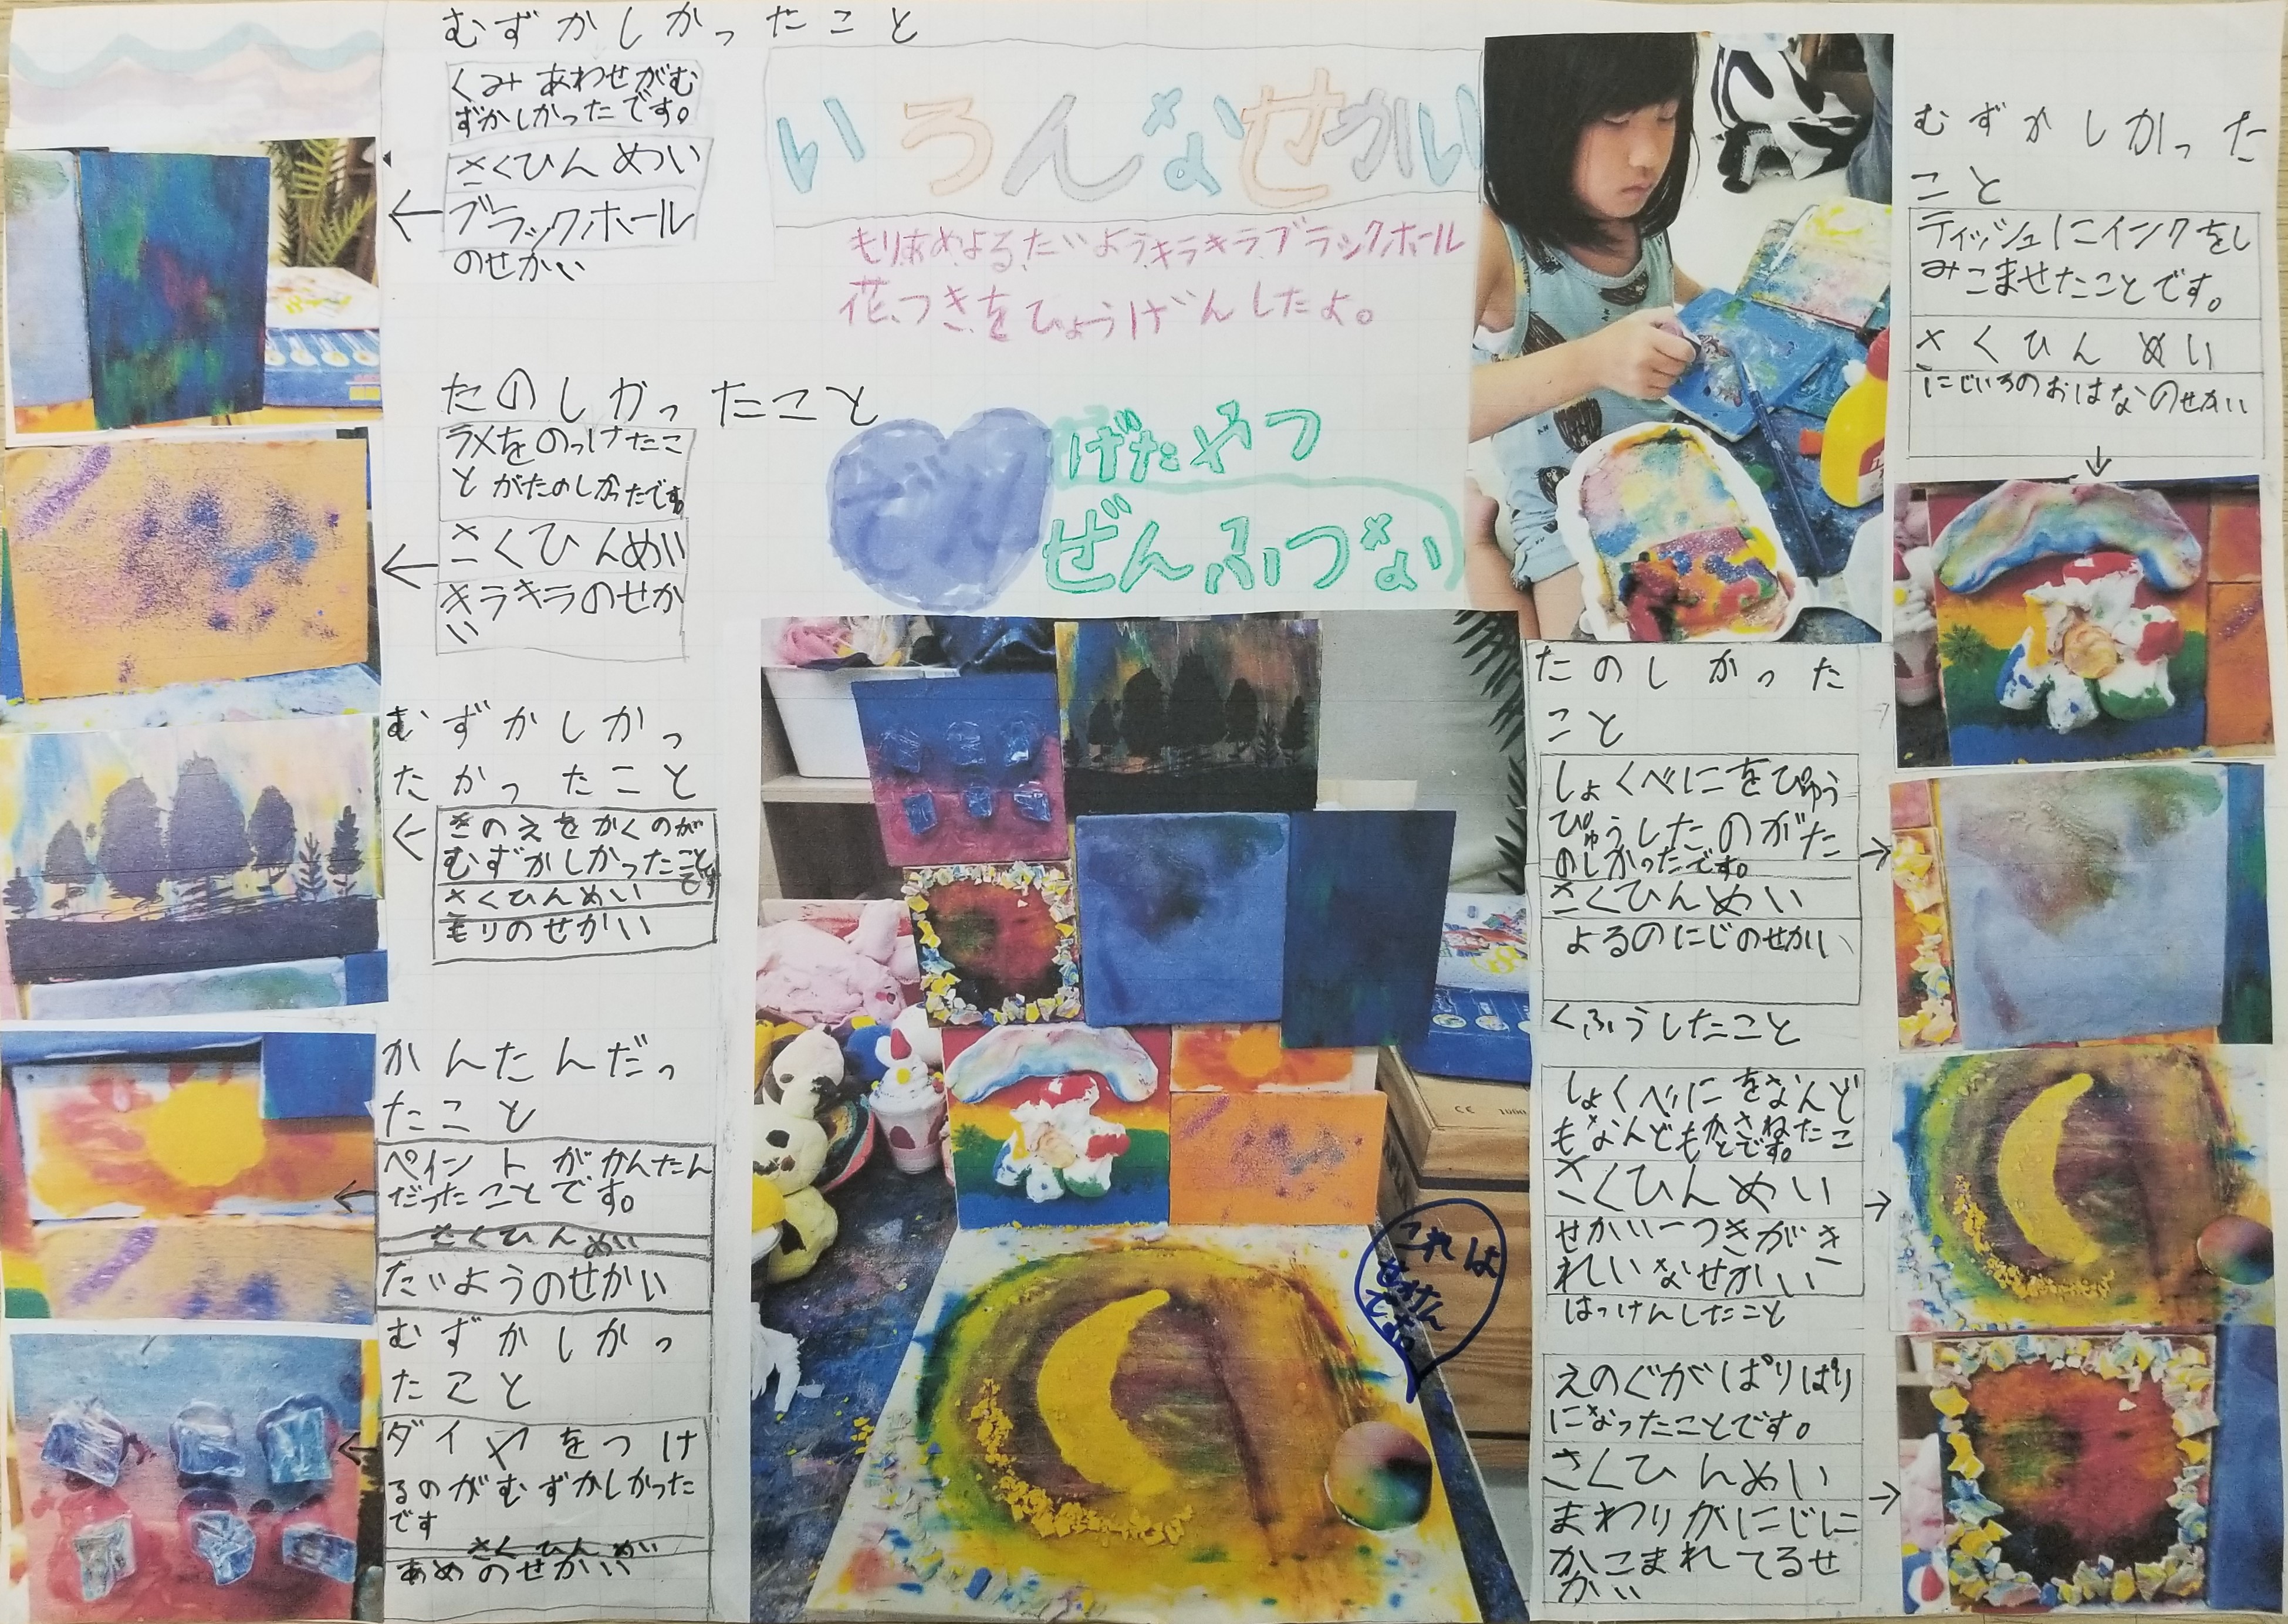 むずかしかったこと
くみあわせがむ
ずかしかったです。
さくひんめい
ブラックホール
のせかい
たのしかったこと
ラメをのっけたこ
とがたのしかったです
さくひんめい
キラキラのせか
い
むずかしかっ
たかったこと
きのえをかくのが
むずかしかったこと
です
さくひんめい
もりのせかい
かんたんだっ
たこと
ペイントがかんたん
だったことです。
さくひんめい
たいようのせかい
むずかしかっ
たこと
ダイヤをつけ
るのがむずかしかった
です
さくひんめい
あめのせかい
いろんなせかい
もり、あめ、よる、たいよう、キラキラ、ブラックホール
花、つきをひょうげんしたよ。
げたやつ
ぜんふつない
これは
むずかしかった
こと
ティッシュにインクをし
みこませたことです。
さくひんめい
にじいろのおはなのせかい
たのしかった
こと
しょくべにをぴゅう
ぴゅうしたのがた
のしかったです。
さくひんめい
よるのにじのせかい
くふうしたこと
しょくべにをなんど
もなんどもかさねたこ
とです。
さくひんめい
せかい一つきがき
れいなせかい
はっけんしたこと
えのぐがぱりぱり
になったことです。
さくひんめい
まわりがにじに
かこまれてるせ
かい
CE 1000